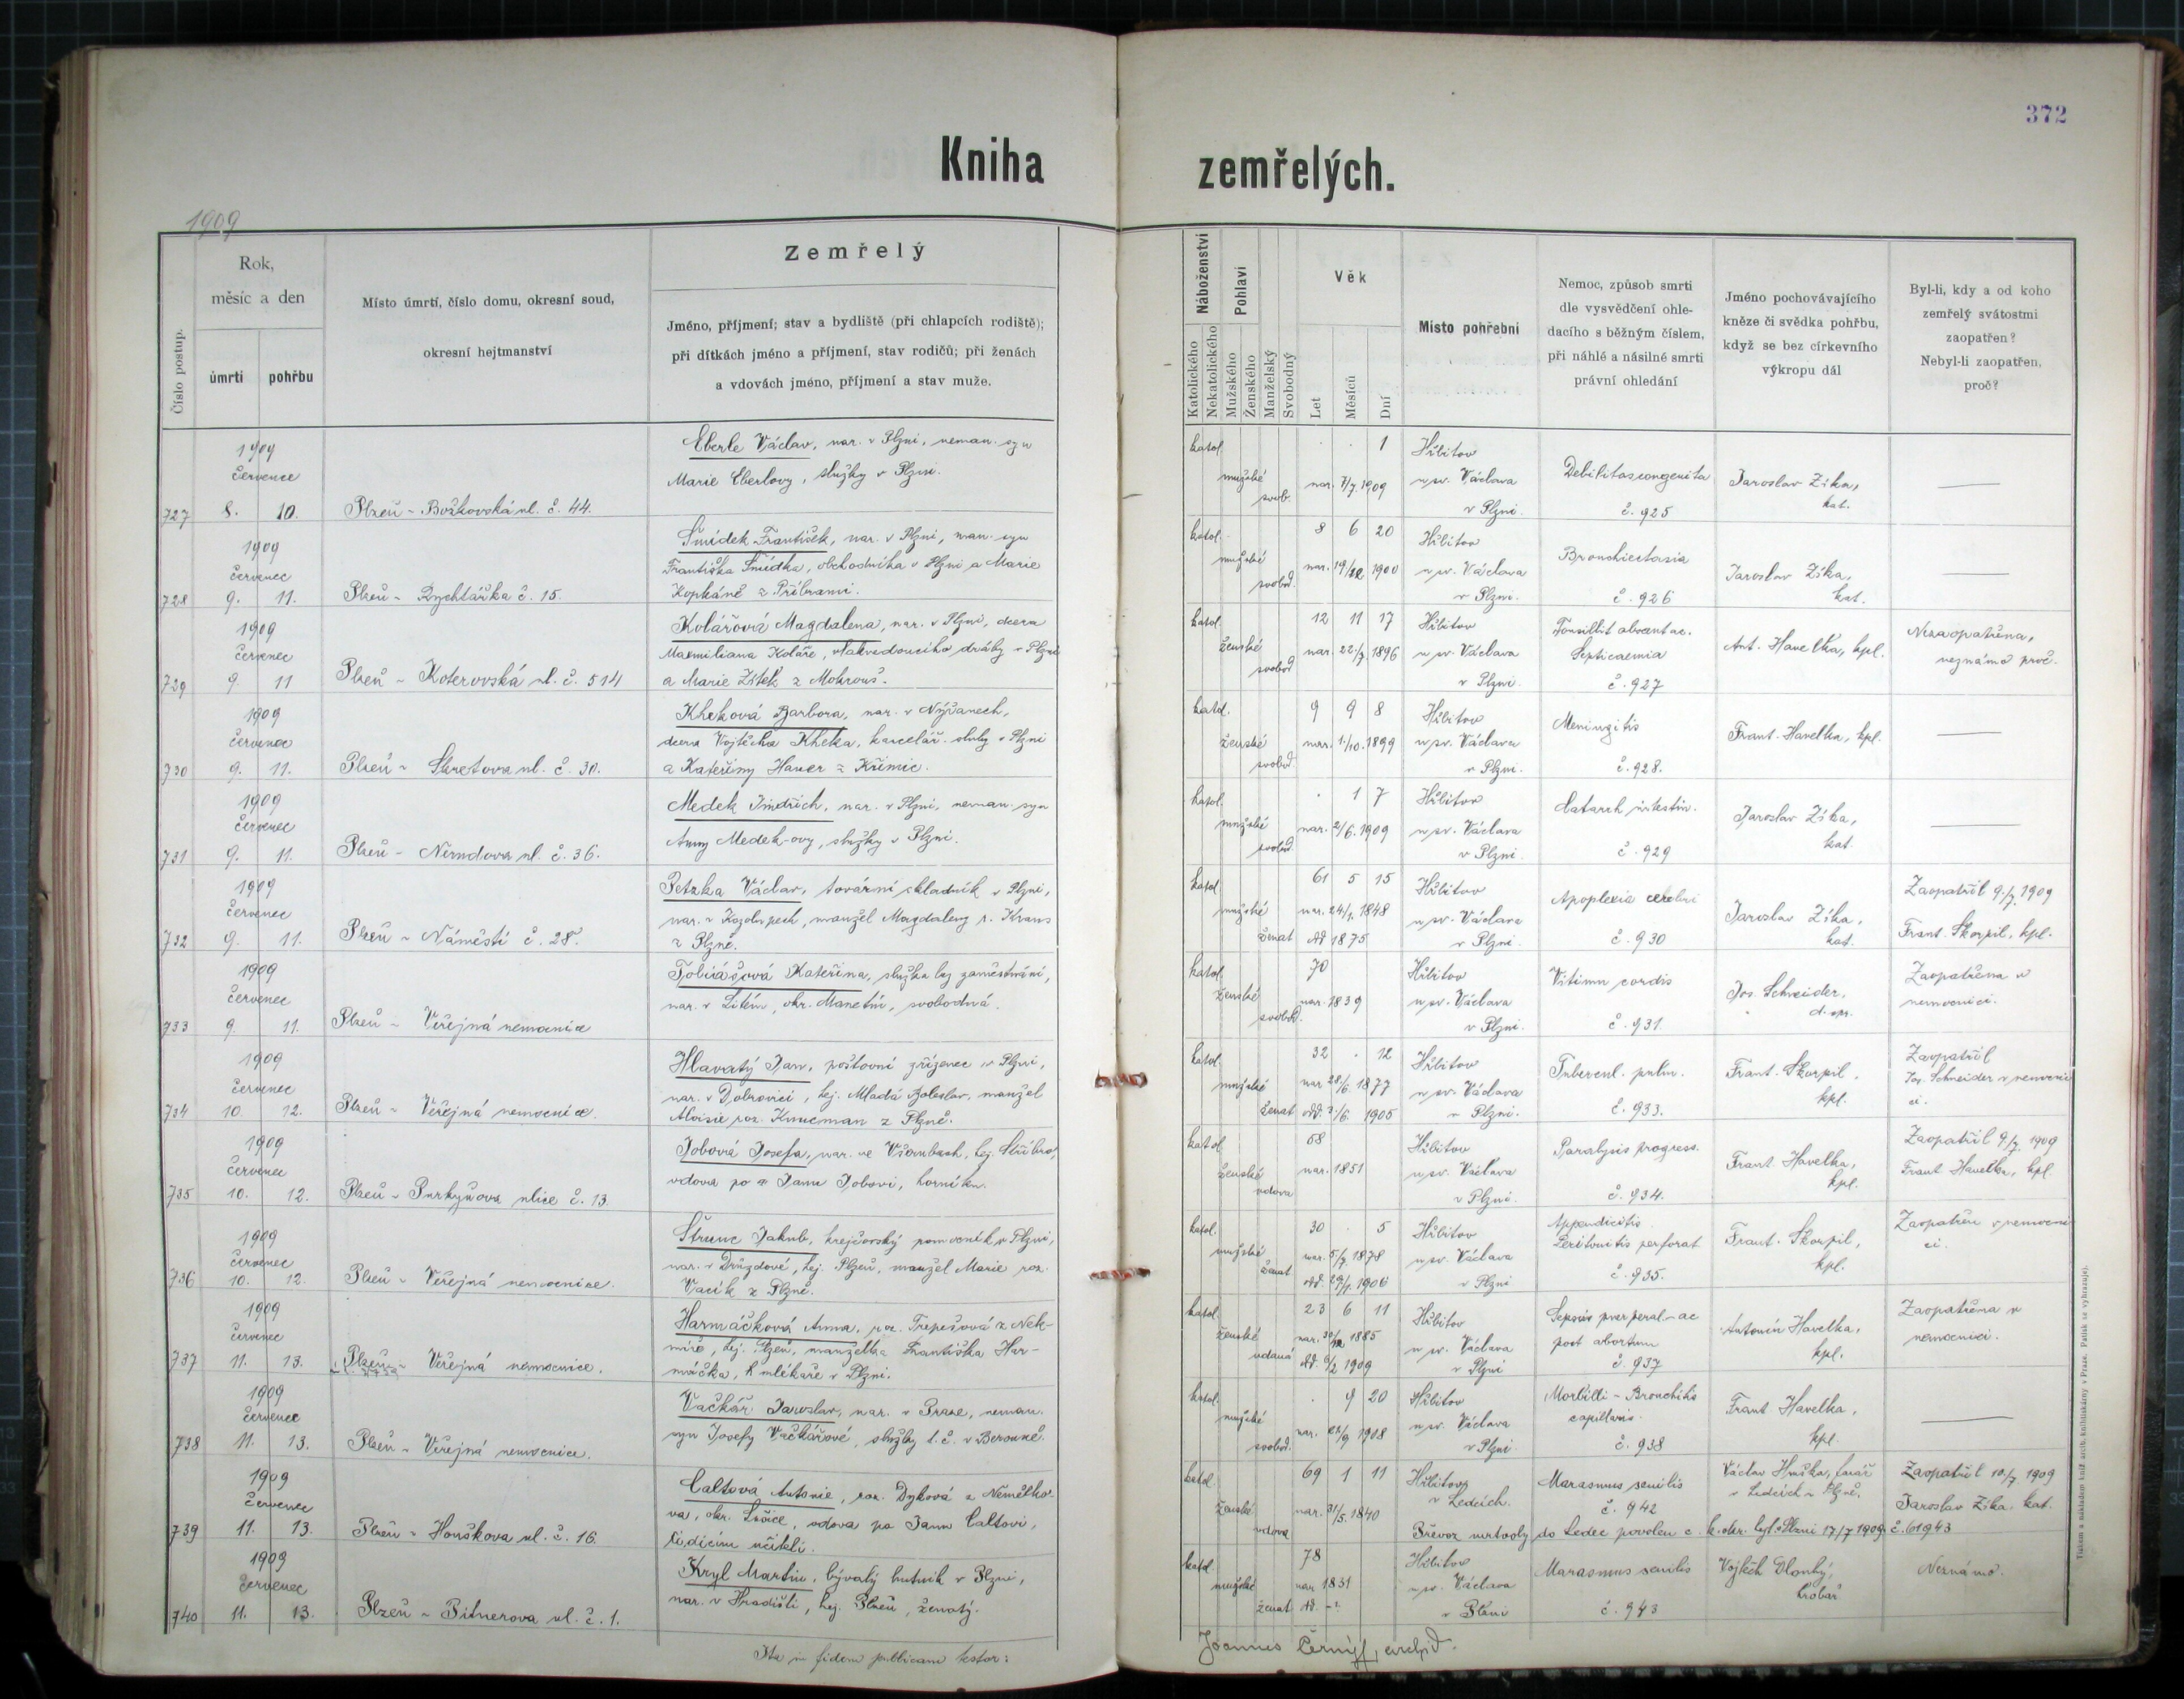 372
Kniha zemřelých.
1909
Číslo postup.
Rok,
měsíc a den
úmrtí
pohřbu
Místo úmrtí, číslo domu, okresní soud,
okresní hejtmanství
Zemřelý
Jméno, příjmení; stav a bydliště (při chlapcích rodiště);
při dítkách jméno a příjmení, stav rodičů; při ženách
a vdovách jméno, příjmení a stav muže.
Náboženství
Katolického
Nekatolického
Pohlaví
Mužského
Ženského
Manželský
Svobodný
Věk
Let
Měsíců
Dní
Místo pohřební
Nemoc, způsob smrti
dle vysvědčení ohle-
dacího s běžným číslem,
při náhlé a násilné smrti
právní ohledání
Jméno pochovávajícího
kněze či svědka pohřbu,
když se bez církevního
výkropu dál
Byl-li, kdy a od koho
zemřelý svátostmi
zaopatřen?
Nebyl-li zaopatřen,
proč?
1909
července
727 8. 10.
Plzeň - Božkovská ul. č. 44.
Eberle Václav, nar. v Plzni, neman. syn
Marie Eberlovy, služky v Plzni.
katol. mužské svob.
. . 1
nar. 7/7. 1909
Hřbitov
u sv. Václava
v Plzni.
Debilitas congenita
č. 925
Jaroslav Zíka,
kat.
—
1909
červenec
728 9. 11.
Plzeň - Rychtářka č. 15.
Šmídek František, nar. v Plzni, man. syn
Františka Šmídka, obchodníka v Plzni a Marie
z Příbrami.
katol. mužské svobod.
8 6 20
nar. 19/12. 1900
Hřbitov
u sv. Václava
v Plzni.
Bronchiectasia
č. 926
Jaroslav Zíka,
kat.
—
1909
červenec
729 9. 11
Plzeň - Koterovská ul. č. 514
Kolářová Magdalena, nar. v Plzni, dcera
Maxmiliana Koláře, vlakvedoucího dráhy v Plzni
a Marie Zítek z
katol. ženské svobod
12 11 17
nar. 22/7. 1896
Hřbitov
u sv. Václava
v Plzni.
Septicaemia
č. 927
Ant. Havelka, kpl.
Nezaopatřena,
neznámo proč.
1909
červenec
730 9. 11.
Plzeň - Škretova ul. č. 30.
Kheková Barbora, nar. v Nýřanech,
dcera Vojtěcha Kheka, kancelář. sluhy v Plzni
a Kateřiny Hauer z Křimic.
katol. ženské svobod.
9 9 8
nar. 1./10. 1899
Hřbitov
u sv. Václava
v Plzni.
Meningitis
č. 928.
Frant. Havelka, kpl.
—
1909
červenec
731 9. 11.
Plzeň - Nerudova ul. č. 36.
Medek Jindřich, nar. v Plzni, neman. syn
Anny Medek-ovy, služky v Plzni.
katol. mužské svobod.
. 1 7
nar. 2/6. 1909
Hřbitov
u sv. Václava
v Plzni.
Catarrh intestin.
č. 929
Jaroslav Zíka,
kat.
—
1909
červenec
732 9. 11.
Plzeň - Náměstí č. 28.
Petzka Václav, tovární skladník v Plzni,
nar. v Kozolupech, manžel Magdaleny r. Kraus
z Plzně.
katol. mužské ženat
61 5 15
nar. 24/1. 1848
odd 1875
Hřbitov
u sv. Václava
v Plzni.
Apoplexia cerebri
č. 930
Jaroslav Zíka,
kat.
Zaopatřil 9./7. 1909
Frant. Škorpil, kpl.
1909
červenec
733 9. 11.
Plzeň - Veřejná nemocnice
Tobiášová Kateřina, služka bez zaměstnání,
nar. v Lítém, okr. Manetín, svobodná.
katol. ženské svobod.
70
nar. 1839
Hřbitov
u sv. Václava
v Plzni.
Vitium cordis
č. 931.
Jos. Schneider,
Zaopatřena v
nemocnici.
1909
červenec
734 10. 12.
Plzeň - Veřejná nemocnice.
Hlavatý Jan, poštovní zřízenec v Plzni,
nar. v Dobrovici, hej. Mladá Boleslav, manžel
Aloisie roz. z Plzně.
katol. mužské ženat
32 . 12
nar. 28/6. 1877
odd. 3/6. 1905
Hřbitov
u sv. Václava
v Plzni.
Tubercul. pulm.
č. 933.
Frant. Škorpil,
kpl.
Zaopatřil
Jos. Schneider v nemocni
ci.
1909
červenec
735 10. 12.
Plzeň - Purkyňova ulice č. 13.
Jobová Josefa, nar. ve hej. Stříbro,
vdova po Janu Jobovi, horníku.
katol. ženské vdova
58
nar. 1851
Hřbitov
u sv. Václava
v Plzni.
Paralysis progress.
č. 934.
Frant. Havelka,
kpl.
Zaopatřil 9./7. 1909
Frant. Havelka, kpl.
1909
červenec
736 10. 12.
Plzeň - Veřejná nemocnice.
Štrunc Jakub, krejčovský pomocník v Plzni,
nar. v Družďové, hej. Plzeň, manžel Marie roz.
Vacík z Plzně.
katol. mužské ženat
30 . 5
nar. 5/7. 1878
odd. 29/1. 1906
Hřbitov
u sv. Václava
v Plzni
Appendicitis
Peritonitis perforat
č. 935.
Frant. Škorpil,
kpl.
Zaopatřen v nemocni
ci.
1909
červenec
737 11. 13.
Plzeň - Veřejná nemocnice.
Harmáčková Anna, roz. Třepešová z Nek-
míře, hej. Plzeň, manželka Františka Har-
máčka, mlékaře v Plzni.
katol. ženské vdaná
23 6 11
nar. 30/12. 1885
odd. 9/2 1909
Hřbitov
u sv. Václava
v Plzni
Sepsis puerperal-ac
post abortum
č. 937
Antonín Havelka,
kpl.
Zaopatřena v
nemocnici.
1909
červenec
738 11. 13.
Plzeň - Veřejná nemocnice.
Vačkář Jaroslav, nar. v Praze, neman.
syn Josefy Vačkářové, služky t. č. v Berouně.
katol. mužské svobod.
. 9 20
nar. 22/9 1908
Hřbitov
u sv. Václava
v Plzni
Morbilli - Bronchitis
capillaris.
č. 938
Frant. Havelka,
kpl.
—
1909
červenec
739 11. 13.
Plzeň - Houškova ul. č. 16.
Caltová Antonie, roz. Dyková z Německo-
va, okr. vdova po Janu Caltovi,
řídícím učiteli.
katol. ženské vdova
69 1 11
nar. 31/5. 1840
Hřbitov
v Ledcích.
Marasmus senilis
č. 942
Václav Hruška, farář
v Ledcích u Plzně.
Zaopatřil 10./7. 1909
Jaroslav Zíka, kat.
Převoz mrtvoly do Ledec povolen c. k. okr. hejt. Plzni 17/7 1909 č. 61943
1909
červenec
740 11. 13.
Plzeň - Pitnerova ul. č. 1.
Kryl Martin, bývalý hutník v Plzni,
nar. v Hradišti, hej. Plzeň, ženatý.
katol. mužské ženat
78
nar. 1831
odd. -?
Hřbitov
u sv. Václava
v Plzni
Marasmus senilis
č. 943
Vojtěch Dlouhý,
hrobař
Neznámo.
Ita in fidem publicam testor:
Joannes Černý, archid.
Tiskem a nákladem kníž. arcib. knihtiskárny v Praze. Patisk se vyhrazuje.